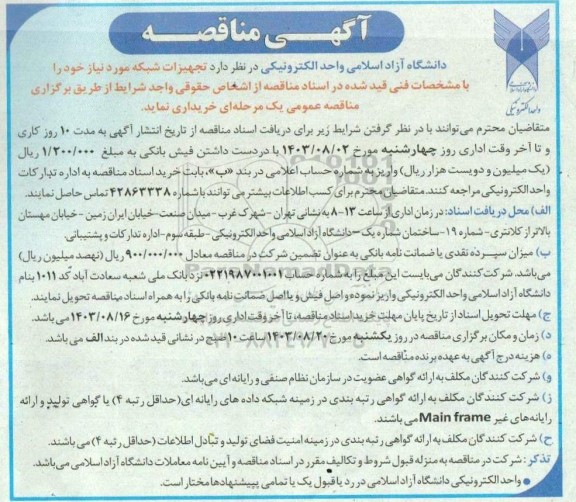 آگهـی مناقصه
دانشگاه آزاد اسلامی
واحد الکترونیکی
دانشگاه آزاد اسلامی واحد الکترونیکی در نظر دارد تجهیزات شبکه مورد نیاز خود را
با مشخصات فنی قید شده در اسناد مناقصه از اشخاص حقوقی واجد شرایط از طریق برگزاری
مناقصه عمومی یک مرحله‌ای خریداری نماید.
متقاضیان محترم می‌توانند با در نظر گرفتن شرایط زیر برای دریافت اسناد مناقصه از تاریخ انتشار آگهی به مدت ۱۰ روز کاری
و تا آخر وقت اداری روز چهارشنبه مورخ ۱۴۰۳/۰۸/۰۲ با در دست داشتن فیش بانکی به مبلغ ۱/۲۰۰/۰۰۰ ریال
(یک میلیون و دویست هزار ریال) واریز به شماره حساب اعلامی در بند «ب»، بابت خرید اسناد مناقصه به اداره تدارکات
واحد الکترونیکی مراجعه کنند. متقاضیان محترم برای کسب اطلاعات بیشتر می توانند با شماره ۴۲۸۶۳۳۳۸ تماس حاصل نمایند.
الف) محل دریافت اسناد: در زمان اداری از ساعت ۱۳-۸ به نشانی تهران - شهرک غرب - میدان صنعت - خیابان ایران زمین - خیابان مهستان
بالاتر از کلانتری - شماره ۱۹ - ساختمان شماره یک - دانشگاه آزاد اسلامی واحد الکترونیکی - طبقه سوم - اداره تدارکات و پشتیبانی.
ب) میزان سپرده نقدی یا ضمانت نامه بانکی به عنوان تضمین شرکت در مناقصه معادل ۹۰۰/۰۰۰/۰۰۰ ریال (نهصد میلیون ریال)
می‌باشد. شرکت کنندگان می‌بایست این مبلغ را به شماره حساب نزد بانک ملی شعبه سعادت آباد کد ۱۰۱۱ بنام
دانشگاه آزاد اسلامی واحد الکترونیکی واریز نموده و اصل فیش و یا اصل ضمانت نامه بانکی را به همراه اسناد مناقصه تحویل نمایند.
ج) مهلت تحویل اسناد از تاریخ پایان مهلت خرید اسناد مناقصه، تا آخر وقت اداری روز چهارشنبه مورخ ۱۴۰۳/۰۸/۱۶ می‌باشد.
د) زمان و مکان برگزاری مناقصه در روز یکشنبه مورخ ۱۴۰۳/۰۸/۲۰ ساعت ۱۰ صبح در نشانی قید شده در بند الف می باشد.
ه) هزینه درج آگهی به عهده برنده مناقصه است.
و) شرکت کنندگان مکلف به ارائه گواهی عضویت در سازمان نظام صنفی و رایانه ای می‌باشد.
ز) شرکت کنندگان مکلف به ارائه گواهی رتبه بندی در زمینه شبکه داده های رایانه ای (حداقل رتبه ۴) یا گواهی تولید و ارائه
رایانه‌های غیر Main frame می باشند.
ح) شرکت کنندگان مکلف به ارائه گواهی رتبه بندی در زمینه امنیت فضای تولید و تبادل اطلاعات (حداقل رتبه ۴) می باشند.
تذکر: شرکت در مناقصه به منزله قبول شروط و تکالیف مقرر در اسناد مناقصه و آیین نامه معاملات دانشگاه آزاد اسلامی می‌باشد.
• واحد الکترونیکی دانشگاه آزاد اسلامی در رد یا قبول یک یا تمامی پیشنهادها مختار است.